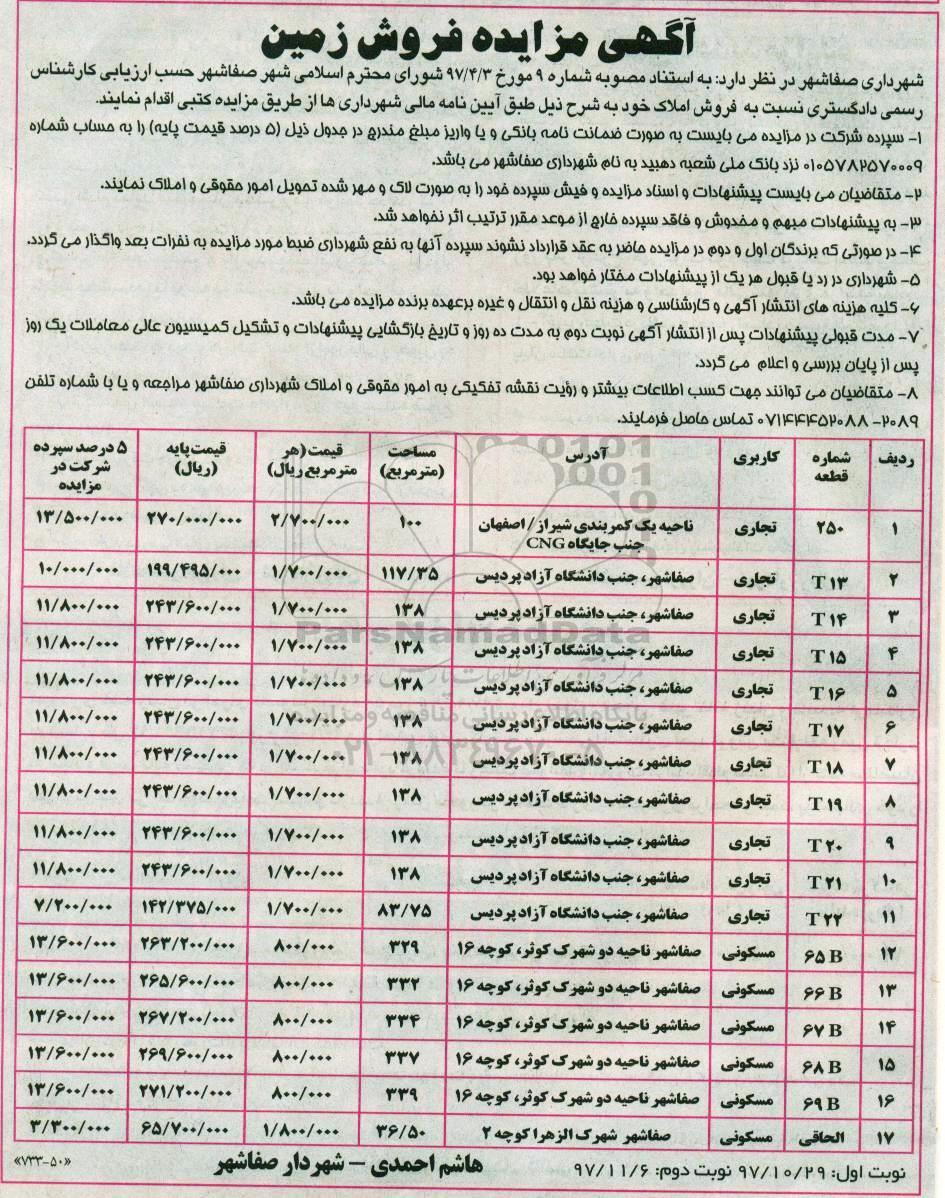 آگهی مزایده فروش زمین
شهرداری صفاشهر در نظر دارد: به استناد مصوبه شماره ۹ مورخ ۹۷/۴/۳ شورای محترم اسلامی شهر صفاشهر حسب ارزیابی کارشناس
رسمی دادگستری نسبت به فروش املاک خود به شرح ذیل طبق آیین نامه مالی شهرداری ها از طریق مزایده کتبی اقدام نمایند.
۱- سپرده شرکت در مزایده می بایست به صورت ضمانت نامه بانکی و یا واریز مبلغ مندرج در جدول ذیل (۵ درصد قیمت پایه) را به حساب شماره
۰۱۰۵۷۸۲۵۷۰۰۰۹ نزد بانک ملی شعبه دهبید به نام شهرداری صفاشهر می باشد.
۲- متقاضیان می بایست پیشنهادات و اسناد مزایده و فیش سپرده خود را به صورت لاک و مهر شده تحویل امور حقوقی و املاک نمایند.
۳- به پیشنهادات مبهم و مخدوش و فاقد سپرده خارج از موعد مقرر ترتیب اثر نخواهد شد.
۴- در صورتی که برندگان اول و دوم در مزایده حاضر به عقد قرارداد نشوند سپرده آنها به نفع شهرداری ضبط مورد مزایده به نفرات بعد واگذار می گردد.
۵- شهرداری در رد یا قبول هر یک از پیشنهادات مختار خواهد بود.
۶- کلیه هزینه های انتشار آگهی و کارشناسی و هزینه نقل و انتقال و غیره برعهده برنده مزایده می باشد.
۷- مدت قبولی پیشنهادات پس از انتشار آگهی نوبت دوم به مدت ده روز و تاریخ بازگشایی پیشنهادات و تشکیل کمیسیون عالی معاملات یک روز
پس از پایان بررسی و اعلام می گردد.
۸- متقاضیان می توانند جهت کسب اطلاعات بیشتر و رؤیت نقشه تفکیکی به امور حقوقی و املاک شهرداری صفاشهر مراجعه و یا با شماره تلفن
۲۰۸۹-۰۷۱۴۴۴۵۲۰۸۸ تماس حاصل فرمایند.
ردیف شماره قطعه کاربری آدرس مساحت (مترمربع) قیمت (هر مترمربع ریال) قیمت پایه (ریال) ۵ درصد سپرده شرکت در مزایده
۱ ۲۵۰ تجاری ناحیه یک کمربندی شیراز / اصفهان جنب جایگاه CNG ۱۰۰ ۲/۷۰۰/۰۰۰ ۲۷۰/۰۰۰/۰۰۰ ۱۳/۵۰۰/۰۰۰
۲ T ۱۳ تجاری صفاشهر، جنب دانشگاه آزاد پردیس ۱۱۷/۳۵ ۱/۷۰۰/۰۰۰ ۱۹۹/۴۹۵/۰۰۰ ۱۰/۰۰۰/۰۰۰
۳ T ۱۴ تجاری صفاشهر، جنب دانشگاه آزاد پردیس ۱۳۸ ۱/۷۰۰/۰۰۰ ۲۴۳/۶۰۰/۰۰۰ ۱۱/۸۰۰/۰۰۰
۴ T ۱۵ تجاری صفاشهر، جنب دانشگاه آزاد پردیس ۱۳۸ ۱/۷۰۰/۰۰۰ ۲۴۳/۶۰۰/۰۰۰ ۱۱/۸۰۰/۰۰۰
۵ T ۱۶ تجاری صفاشهر، جنب دانشگاه آزاد پردیس ۱۳۸ ۱/۷۰۰/۰۰۰ ۲۴۳/۶۰۰/۰۰۰ ۱۱/۸۰۰/۰۰۰
۶ T ۱۷ تجاری صفاشهر، جنب دانشگاه آزاد پردیس ۱۳۸ ۱/۷۰۰/۰۰۰ ۲۴۳/۶۰۰/۰۰۰ ۱۱/۸۰۰/۰۰۰
۷ T ۱۸ تجاری صفاشهر، جنب دانشگاه آزاد پردیس ۱۳۸ ۱/۷۰۰/۰۰۰ ۲۴۳/۶۰۰/۰۰۰ ۱۱/۸۰۰/۰۰۰
۸ T ۱۹ تجاری صفاشهر، جنب دانشگاه آزاد پردیس ۱۳۸ ۱/۷۰۰/۰۰۰ ۲۴۳/۶۰۰/۰۰۰ ۱۱/۸۰۰/۰۰۰
۹ T ۲۰ تجاری صفاشهر، جنب دانشگاه آزاد پردیس ۱۳۸ ۱/۷۰۰/۰۰۰ ۲۴۳/۶۰۰/۰۰۰ ۱۱/۸۰۰/۰۰۰
۱۰ T ۲۱ تجاری صفاشهر، جنب دانشگاه آزاد پردیس ۱۳۸ ۱/۷۰۰/۰۰۰ ۲۴۳/۶۰۰/۰۰۰ ۱۱/۸۰۰/۰۰۰
۱۱ T ۲۲ تجاری صفاشهر، جنب دانشگاه آزاد پردیس ۸۳/۷۵ ۱/۷۰۰/۰۰۰ ۱۴۲/۳۷۵/۰۰۰ ۷/۲۰۰/۰۰۰
۱۲ ۶۵ B مسکونی صفاشهر ناحیه دو شهرک کوثر، کوچه ۱۶ ۳۲۹ ۸۰۰/۰۰۰ ۲۶۳/۲۰۰/۰۰۰ ۱۳/۶۰۰/۰۰۰
۱۳ ۶۶ B مسکونی صفاشهر ناحیه دو شهرک کوثر، کوچه ۱۶ ۳۳۲ ۸۰۰/۰۰۰ ۲۶۵/۶۰۰/۰۰۰ ۱۳/۶۰۰/۰۰۰
۱۴ ۶۷ B مسکونی صفاشهر ناحیه دو شهرک کوثر، کوچه ۱۶ ۳۳۴ ۸۰۰/۰۰۰ ۲۶۷/۲۰۰/۰۰۰ ۱۳/۶۰۰/۰۰۰
۱۵ ۶۸ B مسکونی صفاشهر ناحیه دو شهرک کوثر، کوچه ۱۶ ۳۳۷ ۸۰۰/۰۰۰ ۲۶۹/۶۰۰/۰۰۰ ۱۳/۶۰۰/۰۰۰
۱۶ ۶۹ B مسکونی صفاشهر ناحیه دو شهرک کوثر، کوچه ۱۶ ۳۳۹ ۸۰۰/۰۰۰ ۲۷۱/۲۰۰/۰۰۰ ۱۳/۶۰۰/۰۰۰
۱۷ الحاقی مسکونی صفاشهر شهرک الزهرا کوچه ۲ ۳۶/۵۰ ۱/۸۰۰/۰۰۰ ۶۵/۷۰۰/۰۰۰ ۳/۳۰۰/۰۰۰
نوبت اول: ۹۷/۱۰/۲۹ نوبت دوم: ۹۷/۱۱/۶
هاشم احمدی – شهردار صفاشهر
«۷۳۳-۵۰»
ParsNamadData
پایگاه اطلاع رسانی مناقصه و مزایده
۰۲۱-۸۸۳۴۹۶۷۰-۵